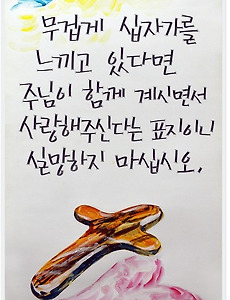 무겁게 십자가를
느끼고 있다면
주님이 함께 계시면서
사랑해주신다는 표지이니
실망하지 마십시오.